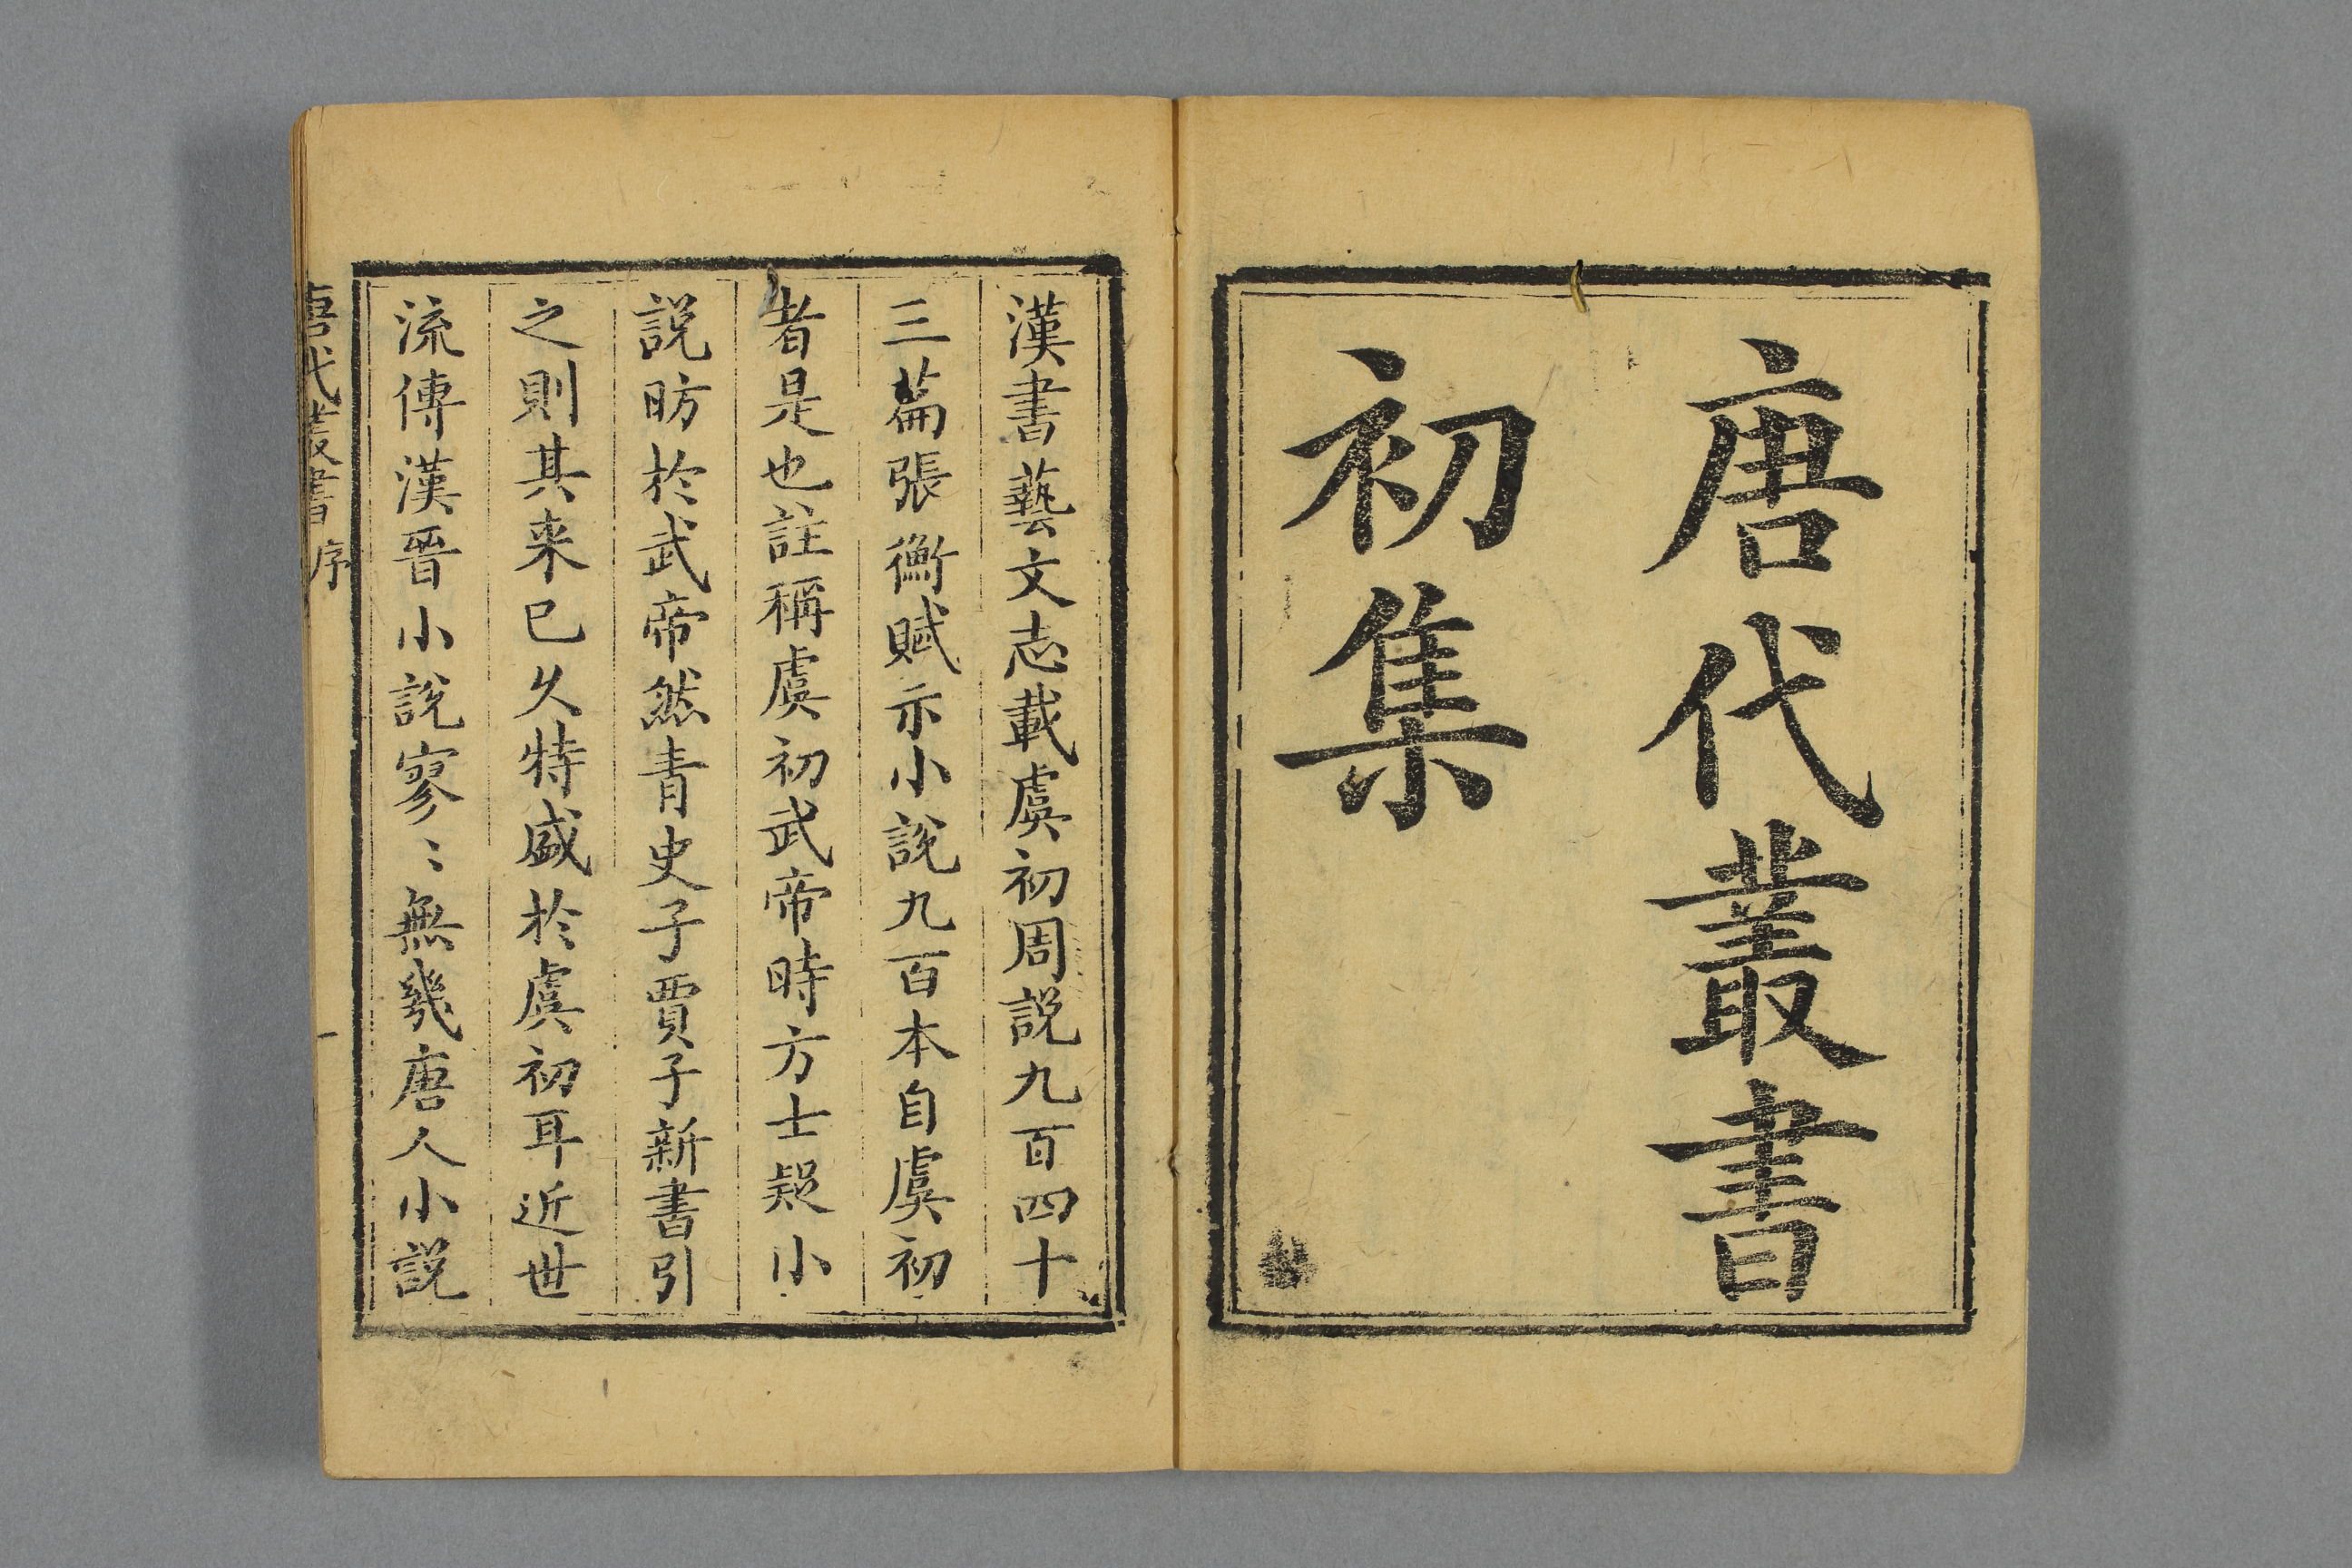 唐代叢書
初集
漢書藝文志載虞初周説九百四十
三篇張衡賦示小説九百本自虞初
者是也註稱虞初武帝時方士疑小
説昉於武帝然青史子賈子新書引
之則其来已久特盛於虞初耳近世
流傳漢晉小説寥〻無幾唐人小説
唐代叢書 序
一